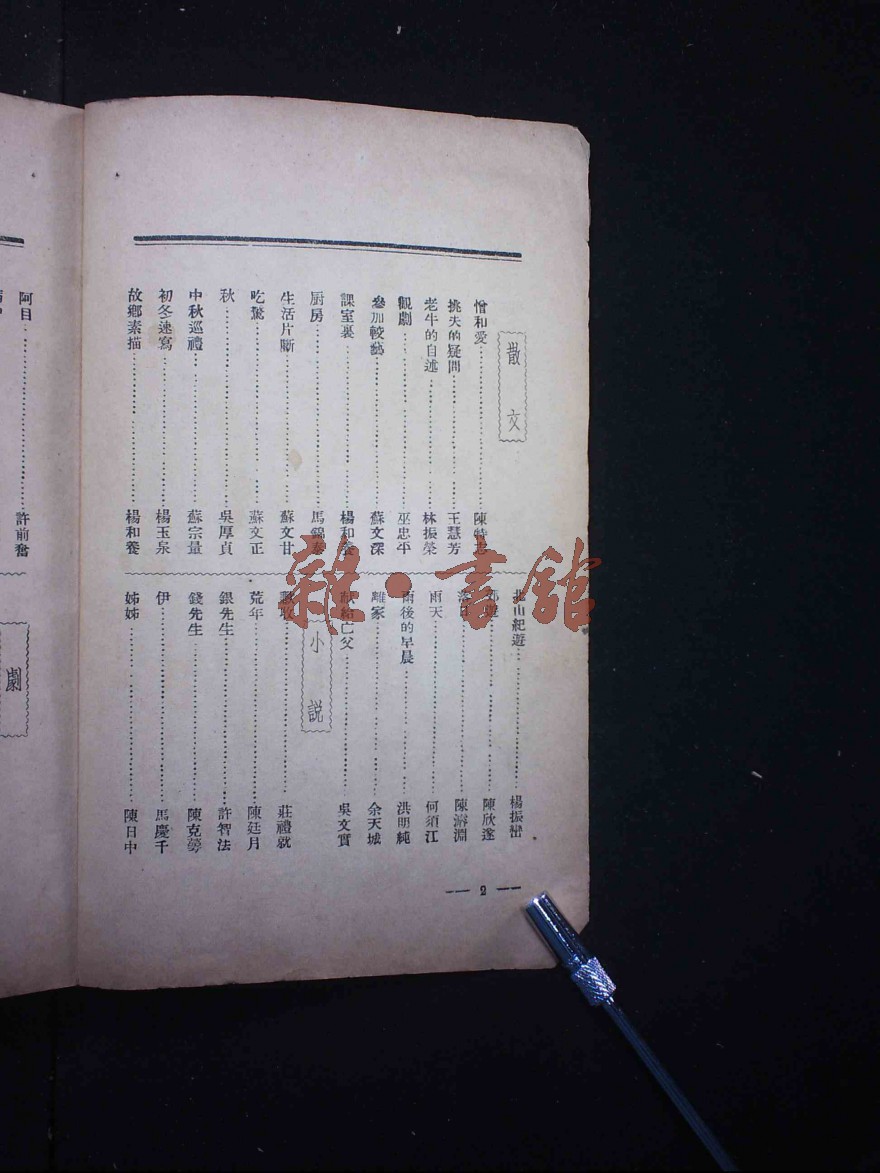 散文
憎和愛
挑夫的疑問 王慧芳
老牛的自述 林振榮
觀劇 巫忠平
參加較藝 蘇文深
課室裏 楊和養
厨房 馬錦泰
生活片斷 蘇文甘
吃驚 蘇文正
秋 吳厚貞
中秋巡禮 蘇宗量
初冬速寫 楊玉泉
故鄉素描 楊和養
北山紀遊 楊振巒
陳欣逢
陳濬淵
雨天 何須江
雨後的早晨 洪明純
離家 余天城
獻給亡父 吳文實
小說
莊禮就
荒年 陳廷月
銀先生 許智法
錢先生 陳克
伊 馬慶千
姊姊 陳日中
— 2 —
阿目 許前奮
劇
雜·書舘